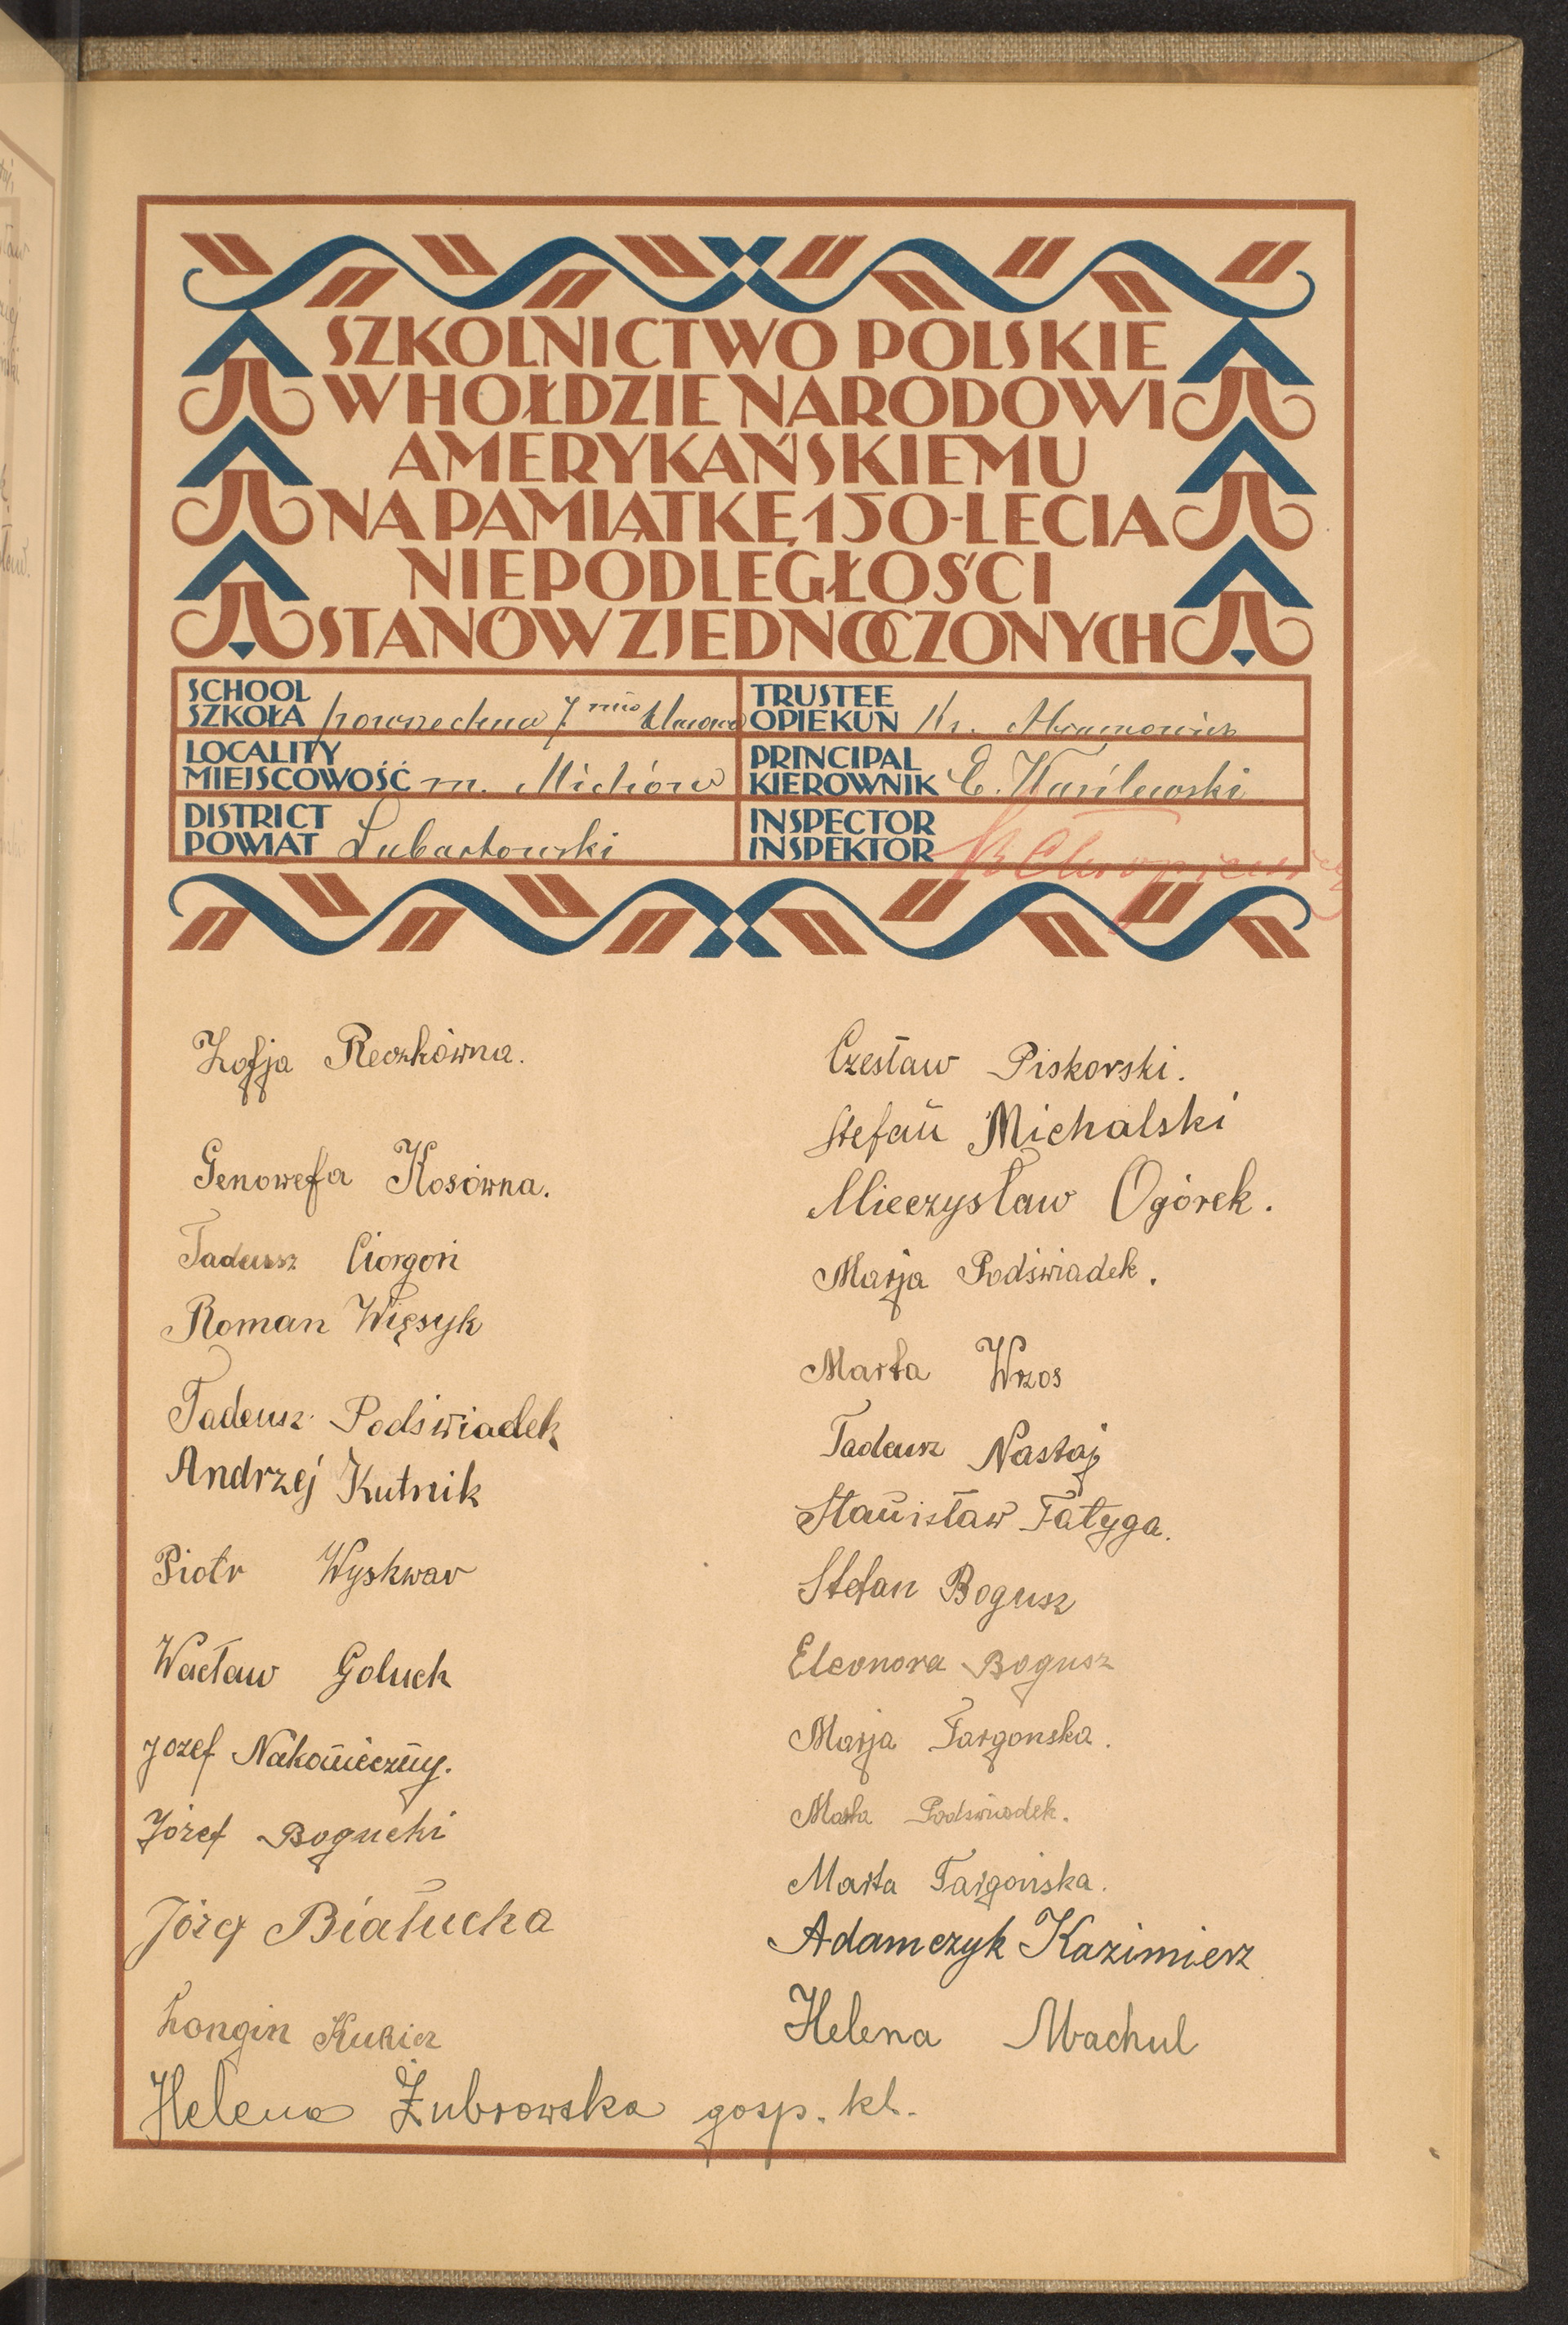 SZKOLNICTWO POLSKIE
W HOŁDZIE NARODOWI
AMERYKAŃSKIEMU
NA PAMIĄTKĘ 150-LECIA
NIEPODLEGŁOŚCI
STANÓW ZJEDNOCZONYCH
SCHOOL
SZKOŁA powszechna 7 mio klasowa
LOCALITY
MIEJSCOWOŚĆ m. Michów
DISTRICT
POWIAT Lubartowski
TRUSTEE
OPIEKUN Kr. Abramowicz
PRINCIPAL
KIEROWNIK E. Wasilewski
INSPECTOR
INSPEKTOR
Zofja Reszkówna.
Genowefa Kosówna.
Tadeusz Ciorgoń
Roman Więsyk
Tadeusz Podświadek
Andrzej Kutnik
Piotr Wyskwar
Wacław Goluch
Jozef Nakonieczny.
Józef Bogucki
Białucha
Longin Kukier
Helena Żubrowska gosp. kl.
Czesław Piskorski.
Stefan Michalski
Mieczysław Ogórek.
Marja Podświadek.
Marta Wrzos
Tadeusz Nastaj
Stanisław Fatyga.
Stefan Bogusz
Eleonora Bogusz
Marja Targonska.
Marta Podświadek.
Marta Targońska.
Adamczyk Kazimierz
Helena Machul